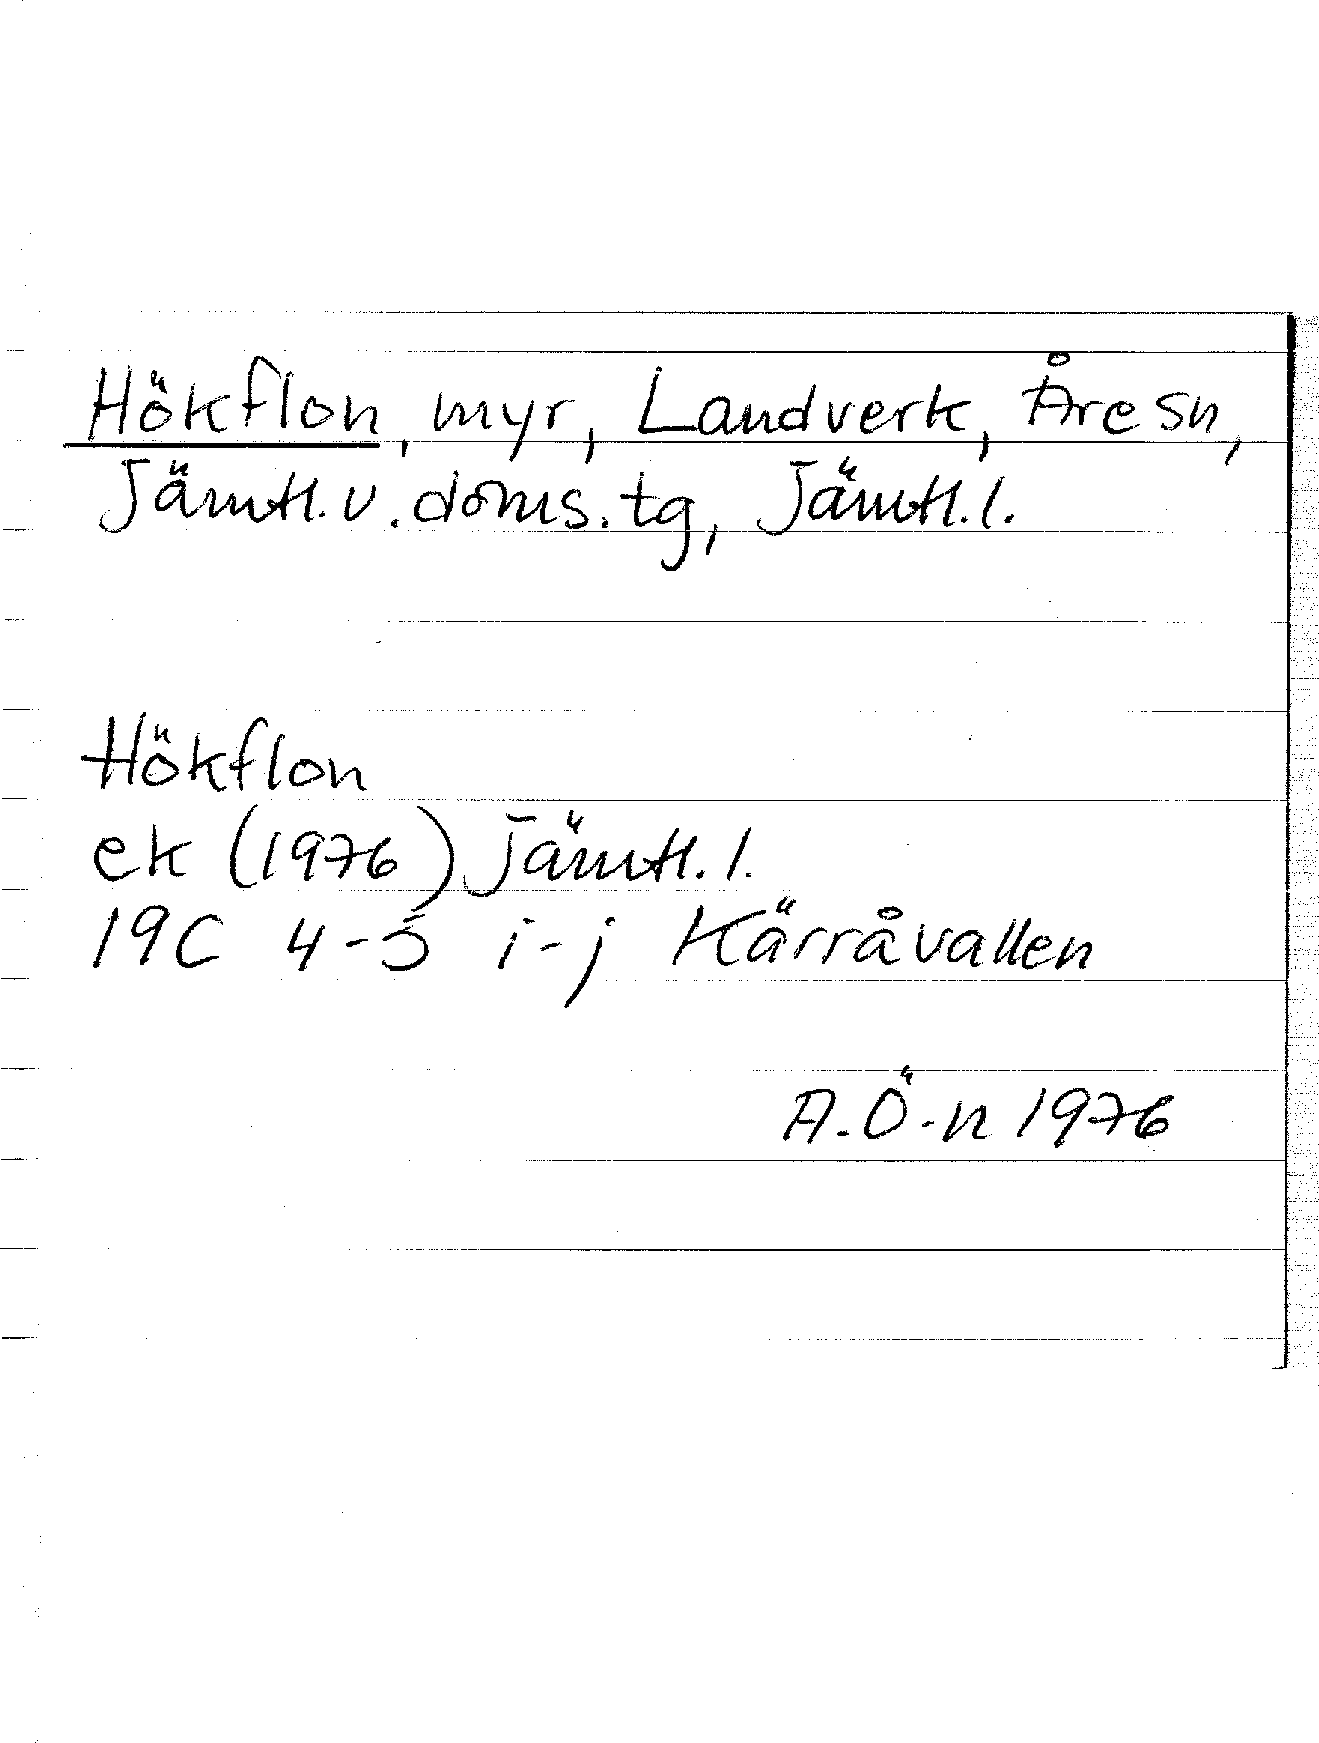 Hökflon, myr, Landverk, Åre sn,
Jämtl. v. doms. tg, Jämtl. l.
Hökflon
ek (1976) Jämtl. l.
19C 4-5 i-j Kärråvallen
A. Ö-n 1976